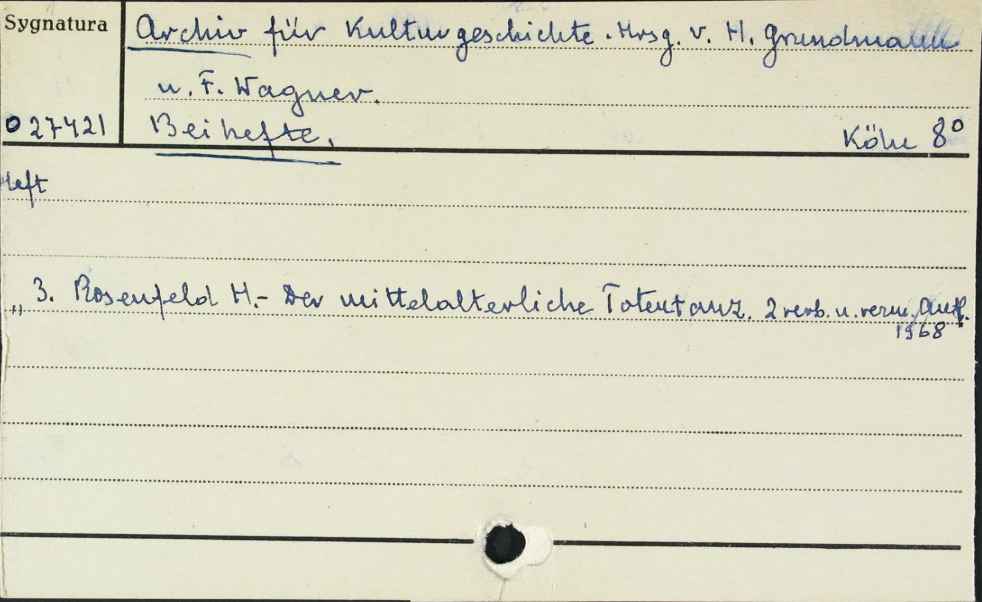 Sygnatura
Archiv für Kulturgeschichte. Hrsg. v. H. Grundmann
u. F. Wagner.
027421 Beihefte. Köln 8°
Heft
„ 3. Rosenfeld H.- Der mittelalterliche Totentanz. 2 verb. u. verm. Aufl.
1968